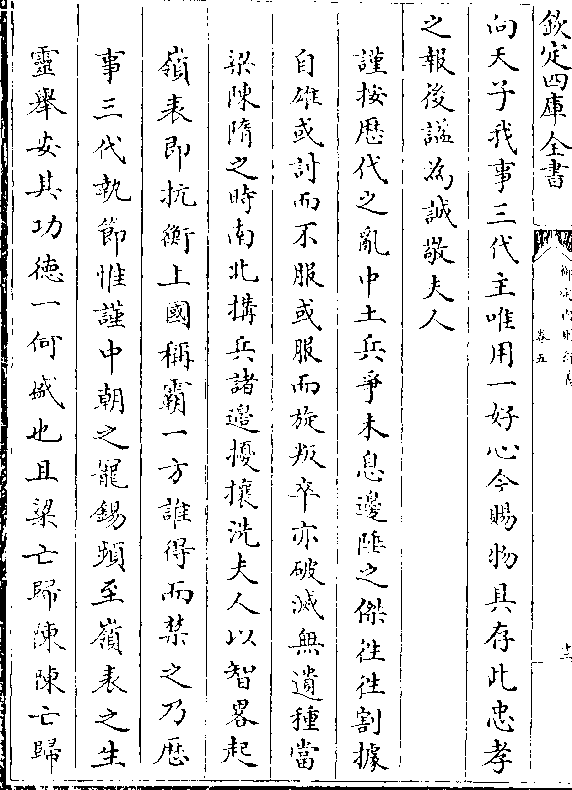 欽定四庫全書
御定內則衍義
卷五
十三
向天子我事三代主唯用一好心今賜物具存此忠孝
之報後諡為誠敬夫人
謹按歴代之亂中土兵爭未息邊陲之傑往往割據
自雄或討而不服或服而旋叛卒亦破滅無遺種當
梁陳隋之時南北搆兵諸邊擾攘洗夫人以智畧起
嶺表即抗衡上國稱霸一方誰得而禁之乃歴
事三代執節惟謹中朝之寵錫頻至嶺表之生
靈舉安其功德一何盛也且梁亡歸陳陳亡歸